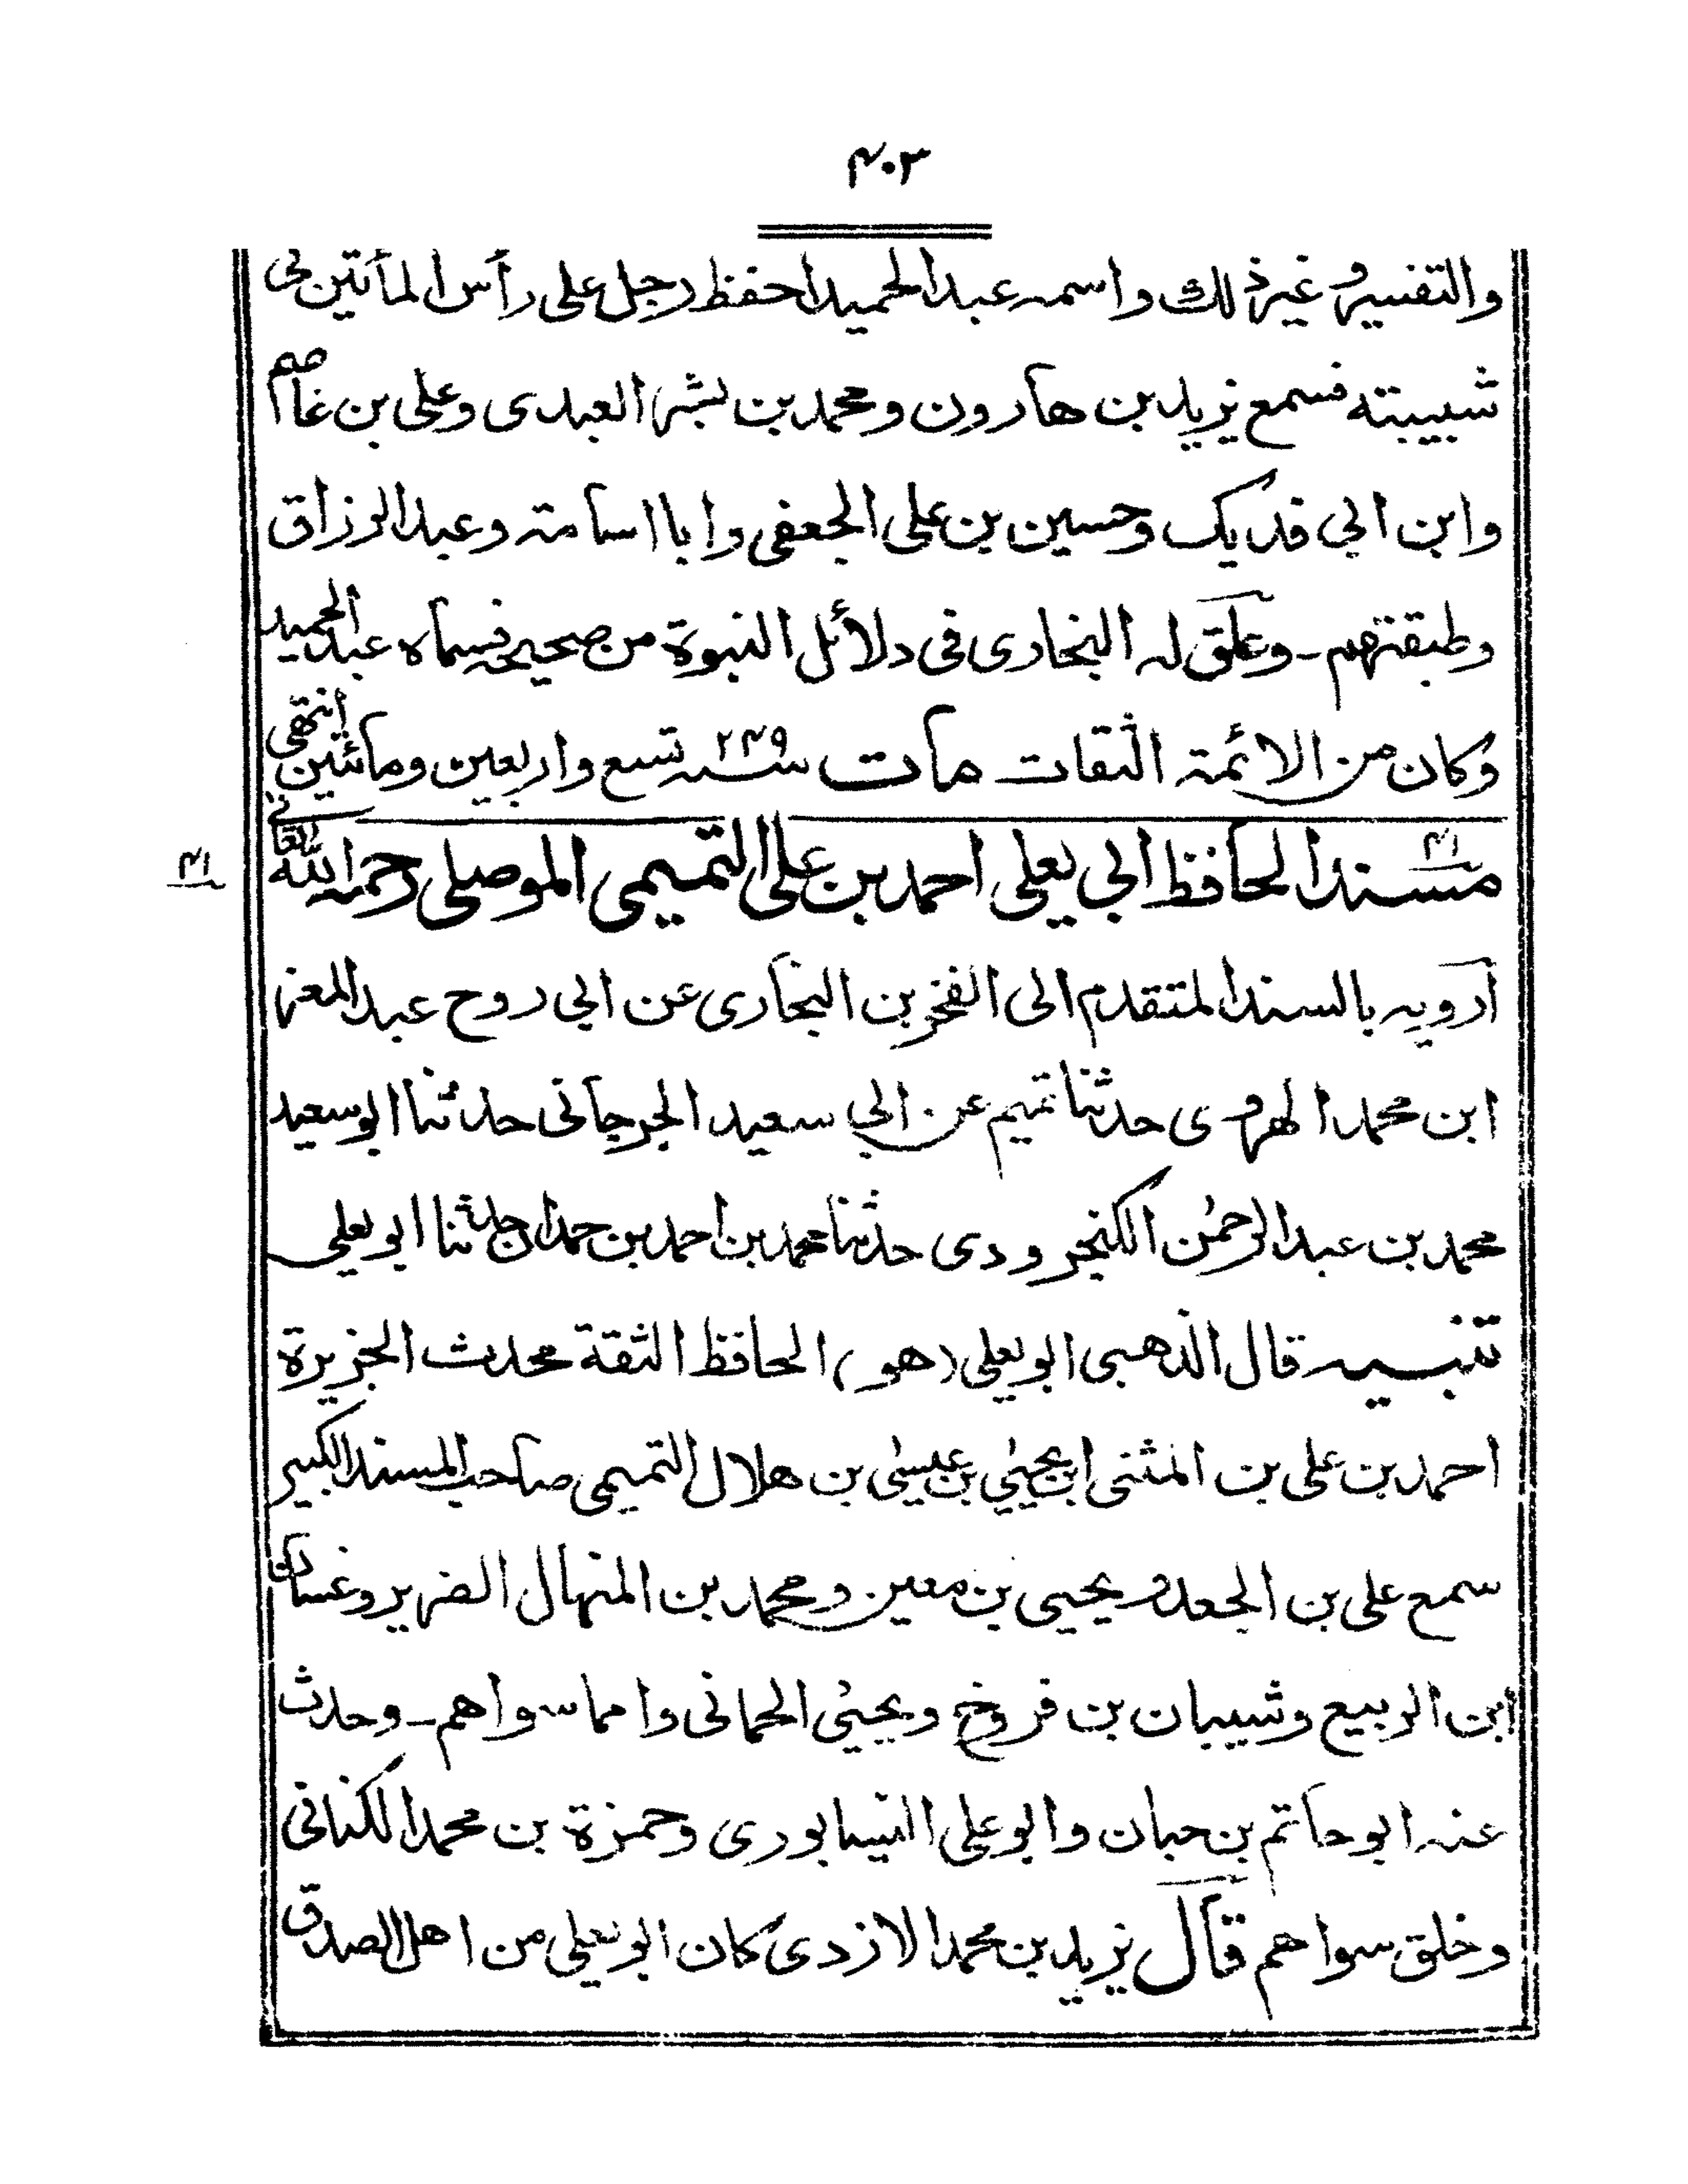 ۴۰۳
والتفسير وغير ذلك واسمه عبد الحميد احفظ رجل على رأس المأتين فى
شبيبته فسمع يزيد بن هارون ومحمد بن بشر العبدى وعلى بن عاصم
وابن ابي فديك وحسين بن على الجعفى وابا اسامة وعبد الرزاق
وطبقتهم ـ وعلق له البخارى فى دلائل النبوة من صحيحه فسماه عبد الحميد
وكان من الائمة الثقات مات سنه ۲۴۹ تسع واربعين ومائتين انتهى
۴۱ مسند الحافظ ابي يعلى احمد بن على التميمى الموصلى رحمه الله تعالى ۴۱
أرويه بالسند المتقدم الى الفخر بن البخارى عن ابي روح عبد المعز
ابن محمد الهروى حدثنا تميم عن ابي سعيد الجرجانى حدثنا ابو سعيد
محمد بن عبد الرحمٰن الكنجرودى حدثنا محمد بن احمد بن حمدان حدثنا ابو يعلى
تنبيه قال الذهبى ابو يعلى (هو) الحافظ الثقة محدث الجزيرة
احمد بن على بن المثنى ابن يحيىٰ بن عيسىٰ بن هلال التميمى صاحب المسند الكبير
سمع على بن الجعد ويحيى بن معين ومحمد بن المنهال الضرير وغسان
ابن الربيع وشيبان بن فروخ ويحيىٰ الحمانى وامما سواهم ـ وحدث
عنه ابو حاتم بن حبان وابو على النيسابورى وحمزة بن محمد الكنانى
وخلق سواهم قال يزيد بن محمد الازدى كان ابو يعلى من اهل الصدق